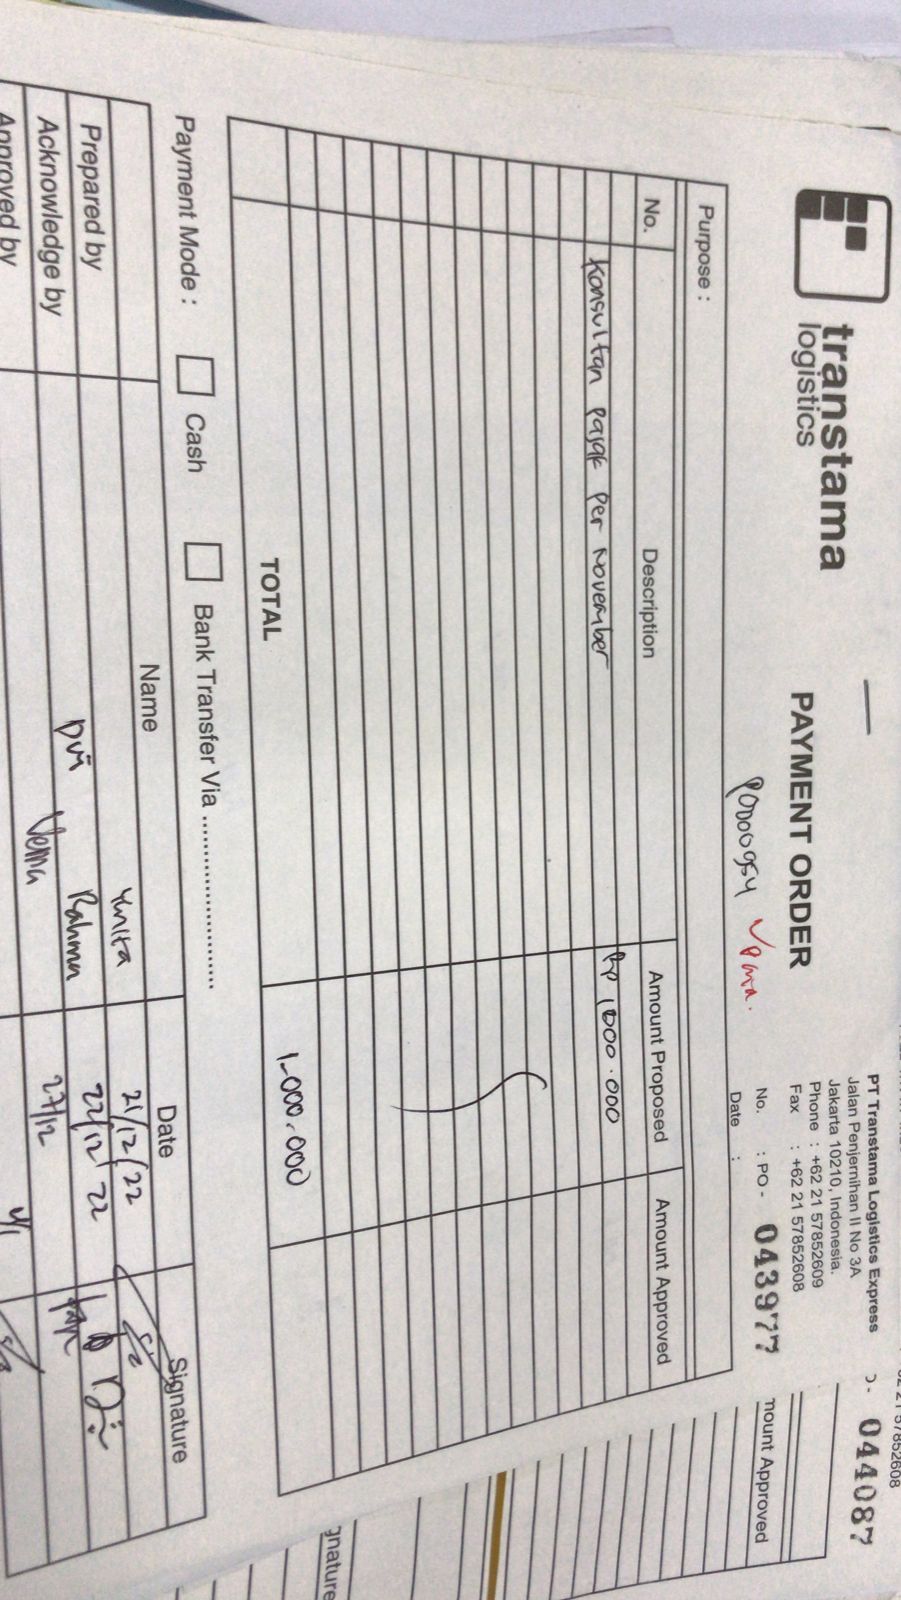 transtama
logistics
PAYMENT ORDER
PT Transtama Logistics Express
Jalan Penjernihan II No 3A
Jakarta 10210, Indonesia.
Phone : +62 21 57852609
Fax : +62 21 57852608
P0000954
No. : PO - 043977
Date :
Purpose :
No. Description Amount Proposed Amount Approved
Konsultan pajak per November Rp 1000.000
TOTAL 1.000.000
Payment Mode : Cash Bank Transfer Via ........................
Name Date Signature
Prepared by Yunita 21/12/22
Acknowledge by Dwi Rahma 22/12 22
Approved by Verna 27/12
44087
nount Approved
gnature